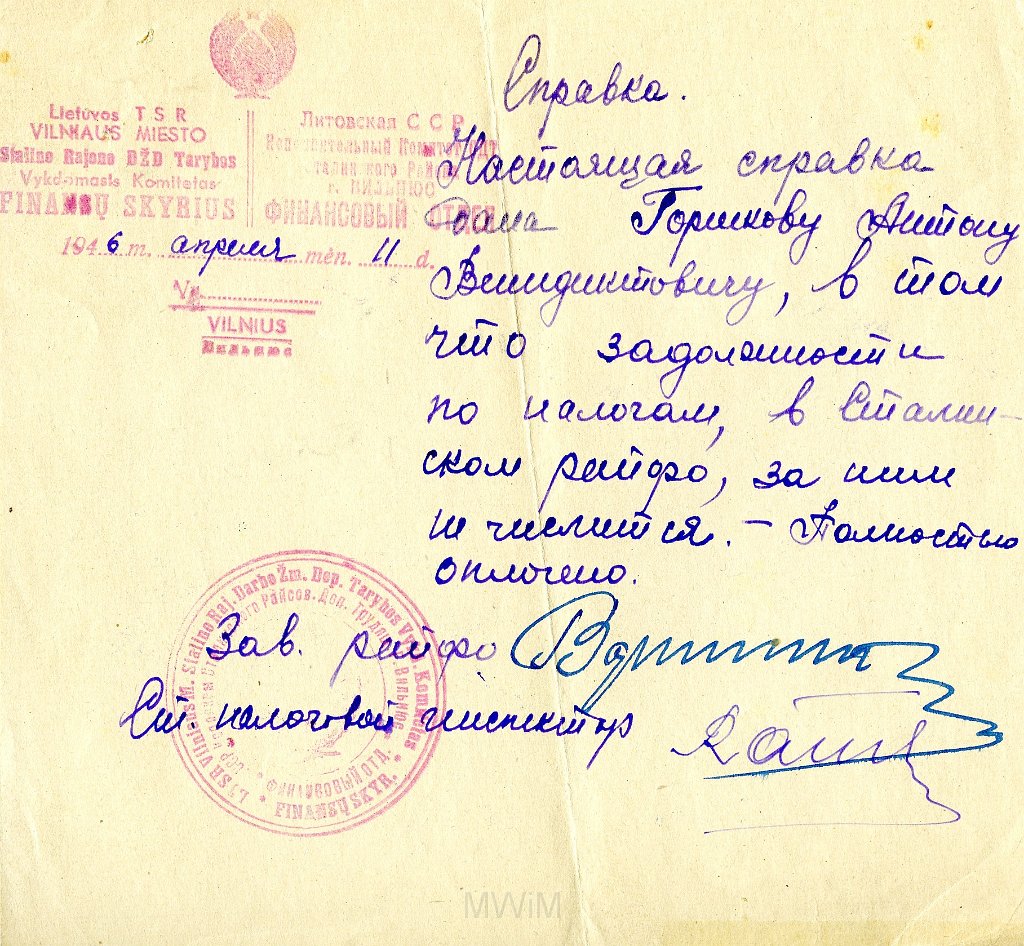 Lietuvos T S R
VILNIAUS MIESTO
Stalino Rajono DŽD Tarybos
Vykdomasis Komitetas
FINANSŲ SKYRIUS
Литовская С С Р
Исполнительный Комитет
Сталинского Района
г. ВИЛЬНЮС
ФИНАНСОВЫЙ ОТДЕЛ
1946 m. апреля mėn. 11 d.
№
VILNIUS
Вильнюс
Справка.
Настоящая справка
дана Горшкову Антону
Венидиктовичу, в том
что задолжности
по налогам, в Сталин-
ском райфо, за ним
не числится. – Полностью
оплочено.
Зав. райфо
Ст налоговой инспектор
LTSR Vilniaus M. Stalino Raj. Darbo Žm. Dep. Tarybos Vykd. Komitetas
ФИНАНСОВЫЙ ОТД.
FINANSŲ SKYR.
MWiM